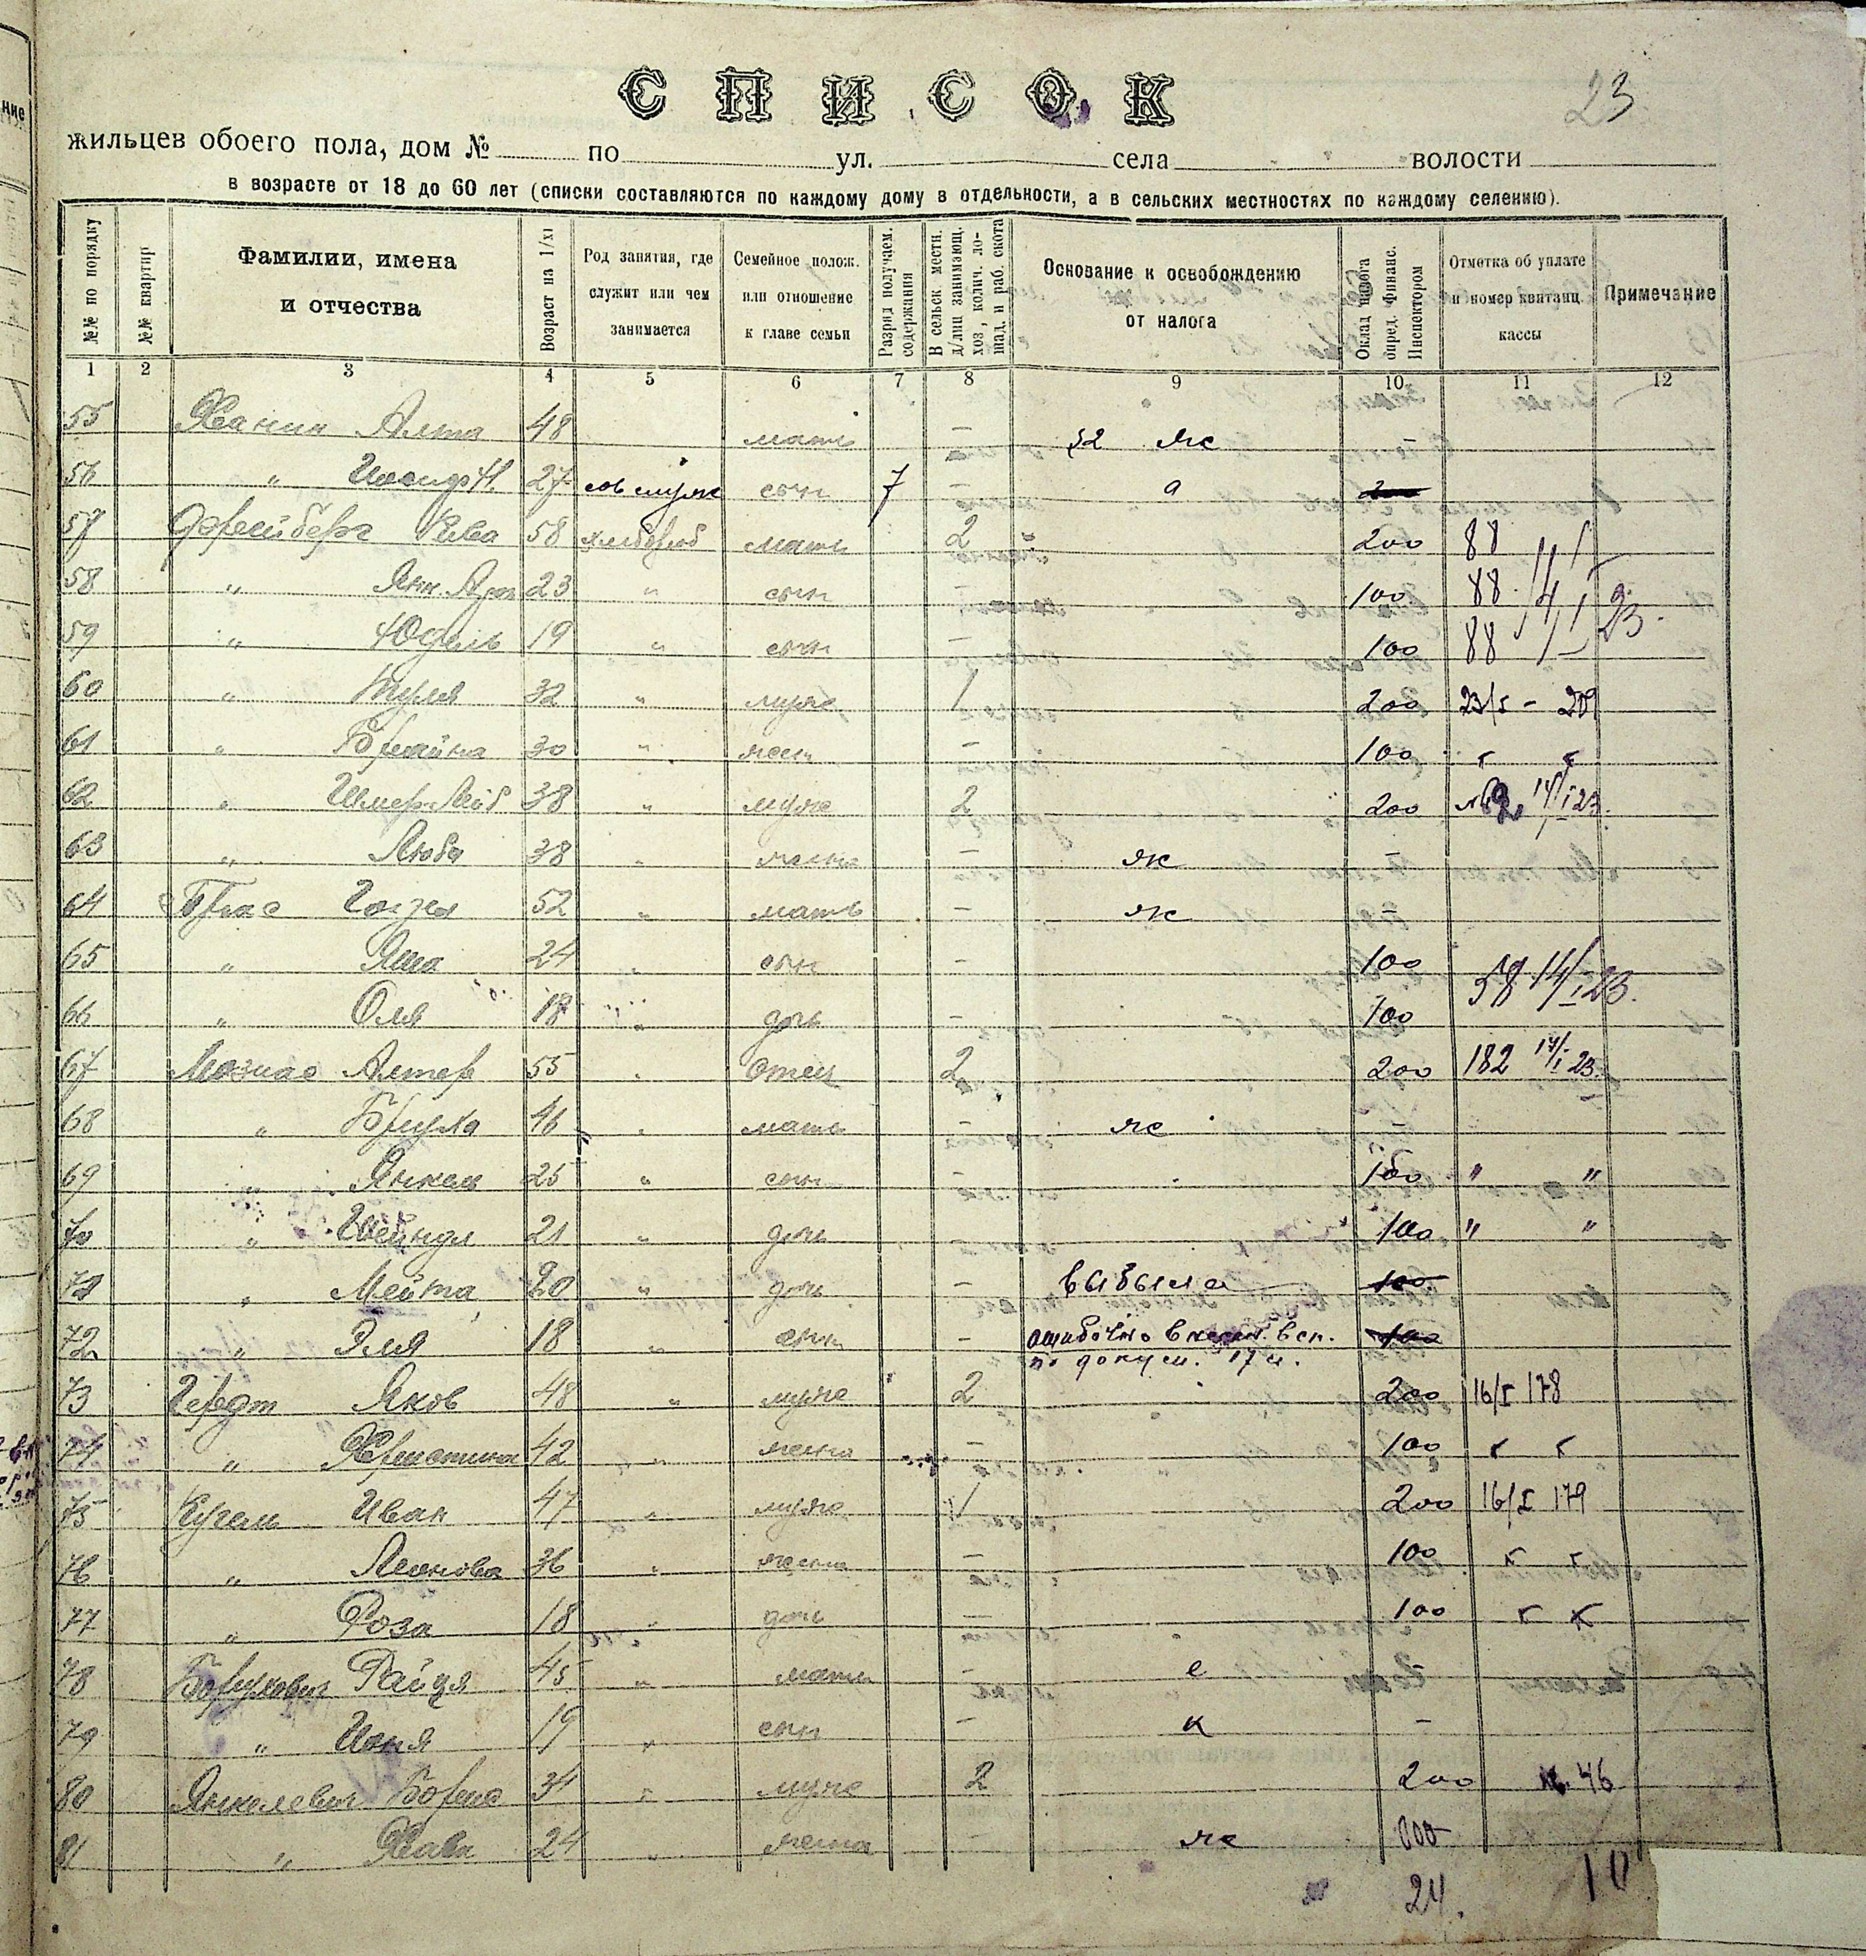 23
СПИСОК
жильцев обоего пола, дом № по ул. села волости
в возрасте от 18 до 60 лет (списки составляются по каждому дому в отдельности, а в сельских местностях по каждому селению).
№№ по порядку
№№ квартир
Фамилии, имена и отчества
Возраст на 1/XI
Род занятия, где служит или чем занимается
Семейное полож. или отношение к главе семьи
Разряд получаем. содержания
В сельск местн. д/лиц занимающ. хоз, колич. лошад. и раб. скота
Основание к освобождению от налога
Оклад налога опред. Финанс. Инспектором
Отметка об уплате и номер квитанц. кассы
Примечание
1 2 3 4 5 6 7 8 9 10 11 12
55 Хванин Алта 48 мать — 52 ж —
56 " 27 сов служ сын 7 — а
57 Фрейберг 58 хлебороб мать 2 200 88
58 " Янк. Арон 23 " сын — 100 88 14/I 23 г.
59 " Юдель 19 " сын — 100 88
60 " 32 " муж 1 200 23/I - 209
61 " Брайна 30 " жен — 100 " "
62 " Шмер-Лейб 38 " муж 2 200 14/I 23.
63 " Люба 38 " жена — ж —
64 52 " мать — ж —
65 " Яша 24 " сын — 100 58 14/I 23.
66 " Оля 18 " дочь — 100
67 Мознас Алтер 55 " отец 2 200 182 14/I 23.
68 " Бруха 46 " мать — ж —
69 " Янкель 25 " сын — 100 " "
70 " Шейндл 21 " дочь — 100 " "
71 " Мейта 20 " дочь — выбыла 100
72 " Эля 18 " сын — ошибочно внесен. в сп. 100
по докум. 17 л.
73 Гердт Яков 48 " муж 2 200 16/I 178
74 " Христина 42 " жена — 100 " "
75 Кугель Иван 47 " муж 1 200 16/I 179
76 " 36 " жена — 100 " "
77 " Роза 18 " дочь — 100 " "
78 Борухович Райця 45 " мать — е —
79 " Ионя 19 " сын — к —
80 Янкелевич Борис 34 " муж 2 200 № 46
81 " Хава 24 " жена — ж
24.
10